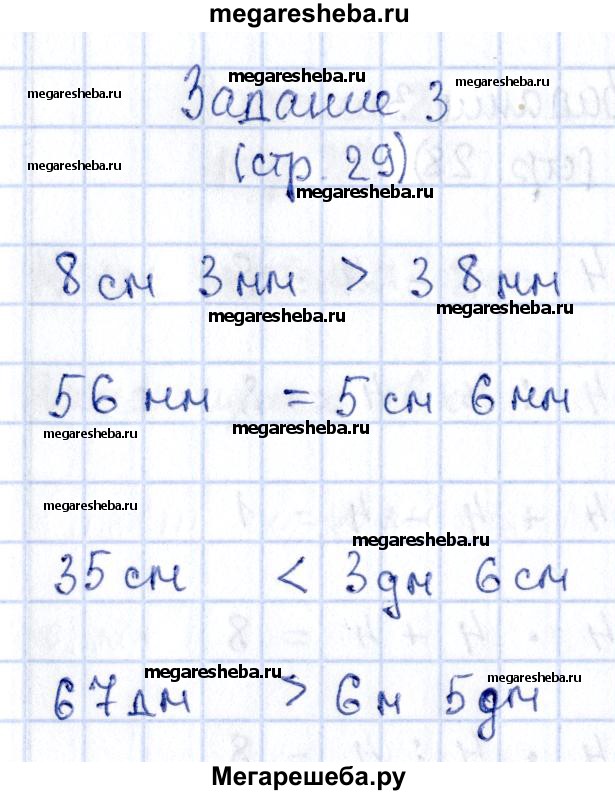 megaresheba.ru
megaresheba.ru
megaresheba.ru
megaresheba.ru
Задание 3
megaresheba.ru
(стр. 29)
megaresheba.ru
8 см 3 мм > 38 мм
megaresheba.ru
megaresheba.ru
56 мм = 5 см 6 мм
megaresheba.ru
megaresheba.ru
megaresheba.ru
megaresheba.ru
35 см < 3 дм 6 см
megaresheba.ru
megaresheba.ru
67 дм > 6 м 5 дм
Мегарешеба.ру